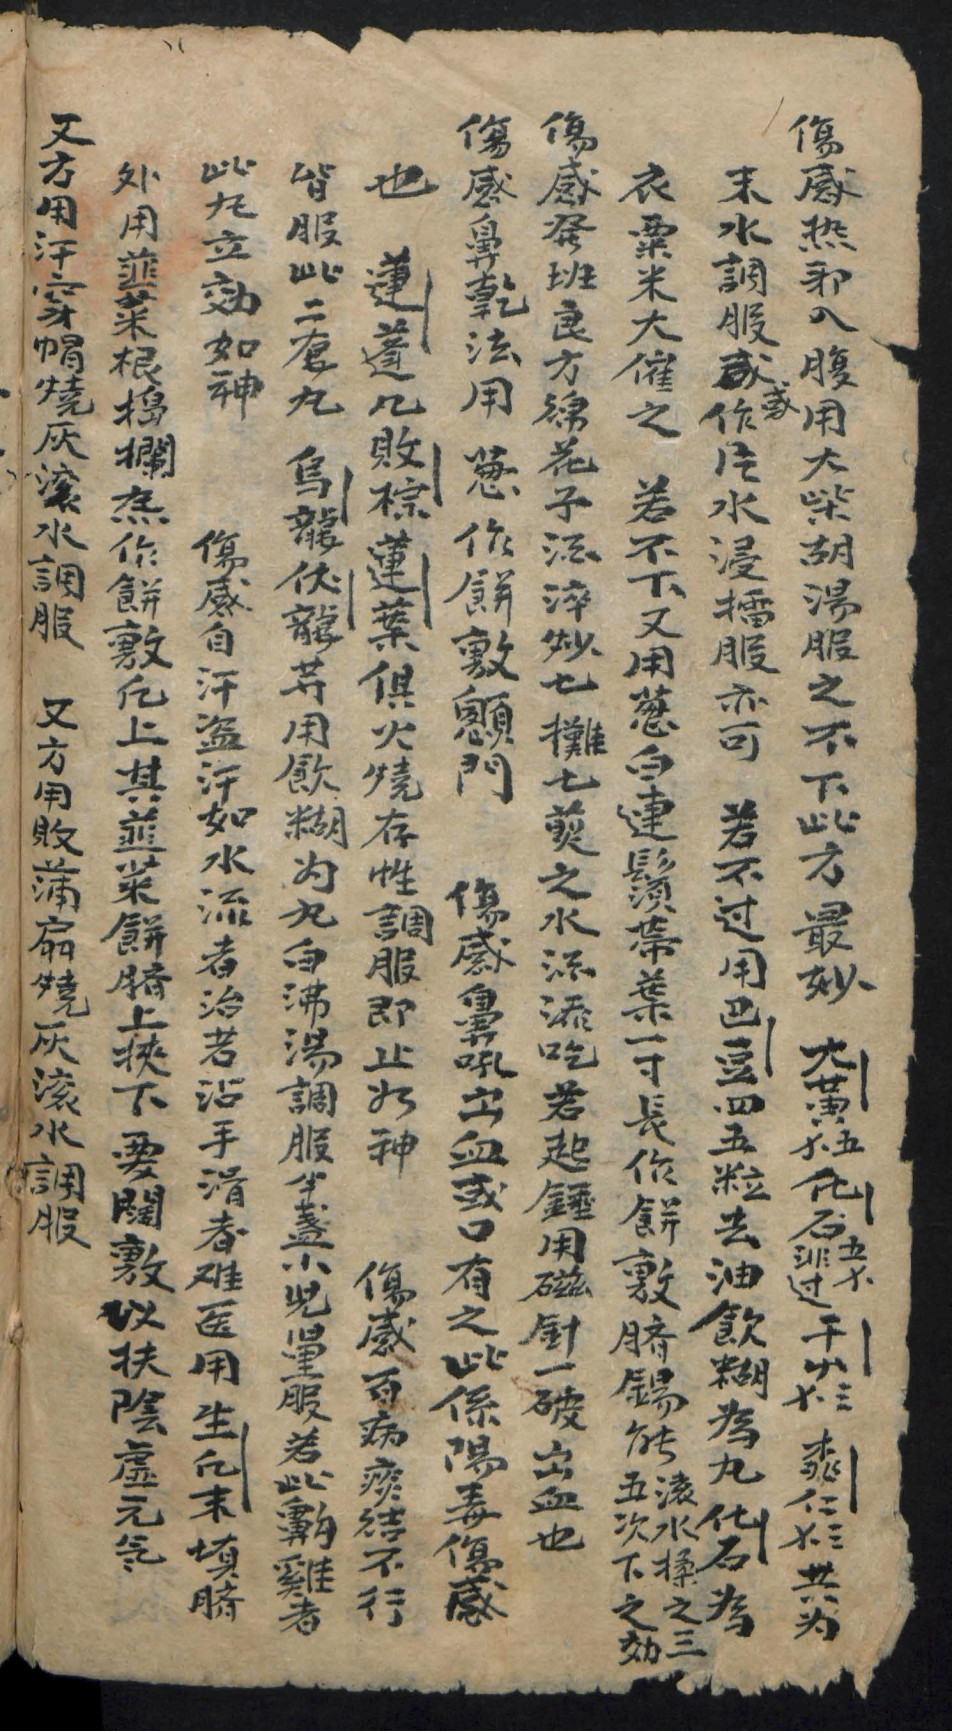 傷感热邪入腹用大柴胡湯服之不下此方最妙 大黄五 化石五 过 干 三 桃仁三 共为
末水調服或作片水浸擂服亦可 若不过用巴豆四五粒去油飲糊為丸化石為
衣粟米大催之 若不下又用葱白連鬚帶葉一寸長作餅敷臍錫 滾水揉之三五次下之効
傷感發班良方 花子 炒七攤七煎之水 吃若起 用磁針一破出血也
傷感鼻乾法用葱作餅敷顖門 傷感鼻 出血或口有之此係陽毒傷感
也 蓮蓬凢敗棕蓮葉俱火燒存性調服即止如神 傷感百病痰結不行
皆服此二 丸 烏龍伏龍 用飲糊为丸白沸湯調服半盞小児量服若此 雞者
此丸立効如神 傷感自汗盗汗如水流者治若沾手滑者难医用生 末填臍
外用韮菜根搗攔 作餅敷 上其韮菜餅臍上挾下要闊敷以扶陰虚元氣
又方用汗穿帽燒灰滚水調服 又方用敗蒲扇燒灰滚水調服